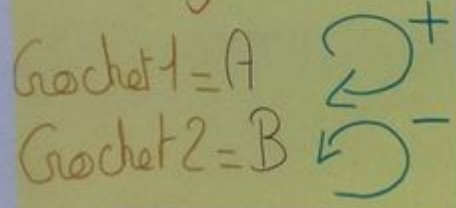 Crochet 1 = A +
Crochet 2 = B -